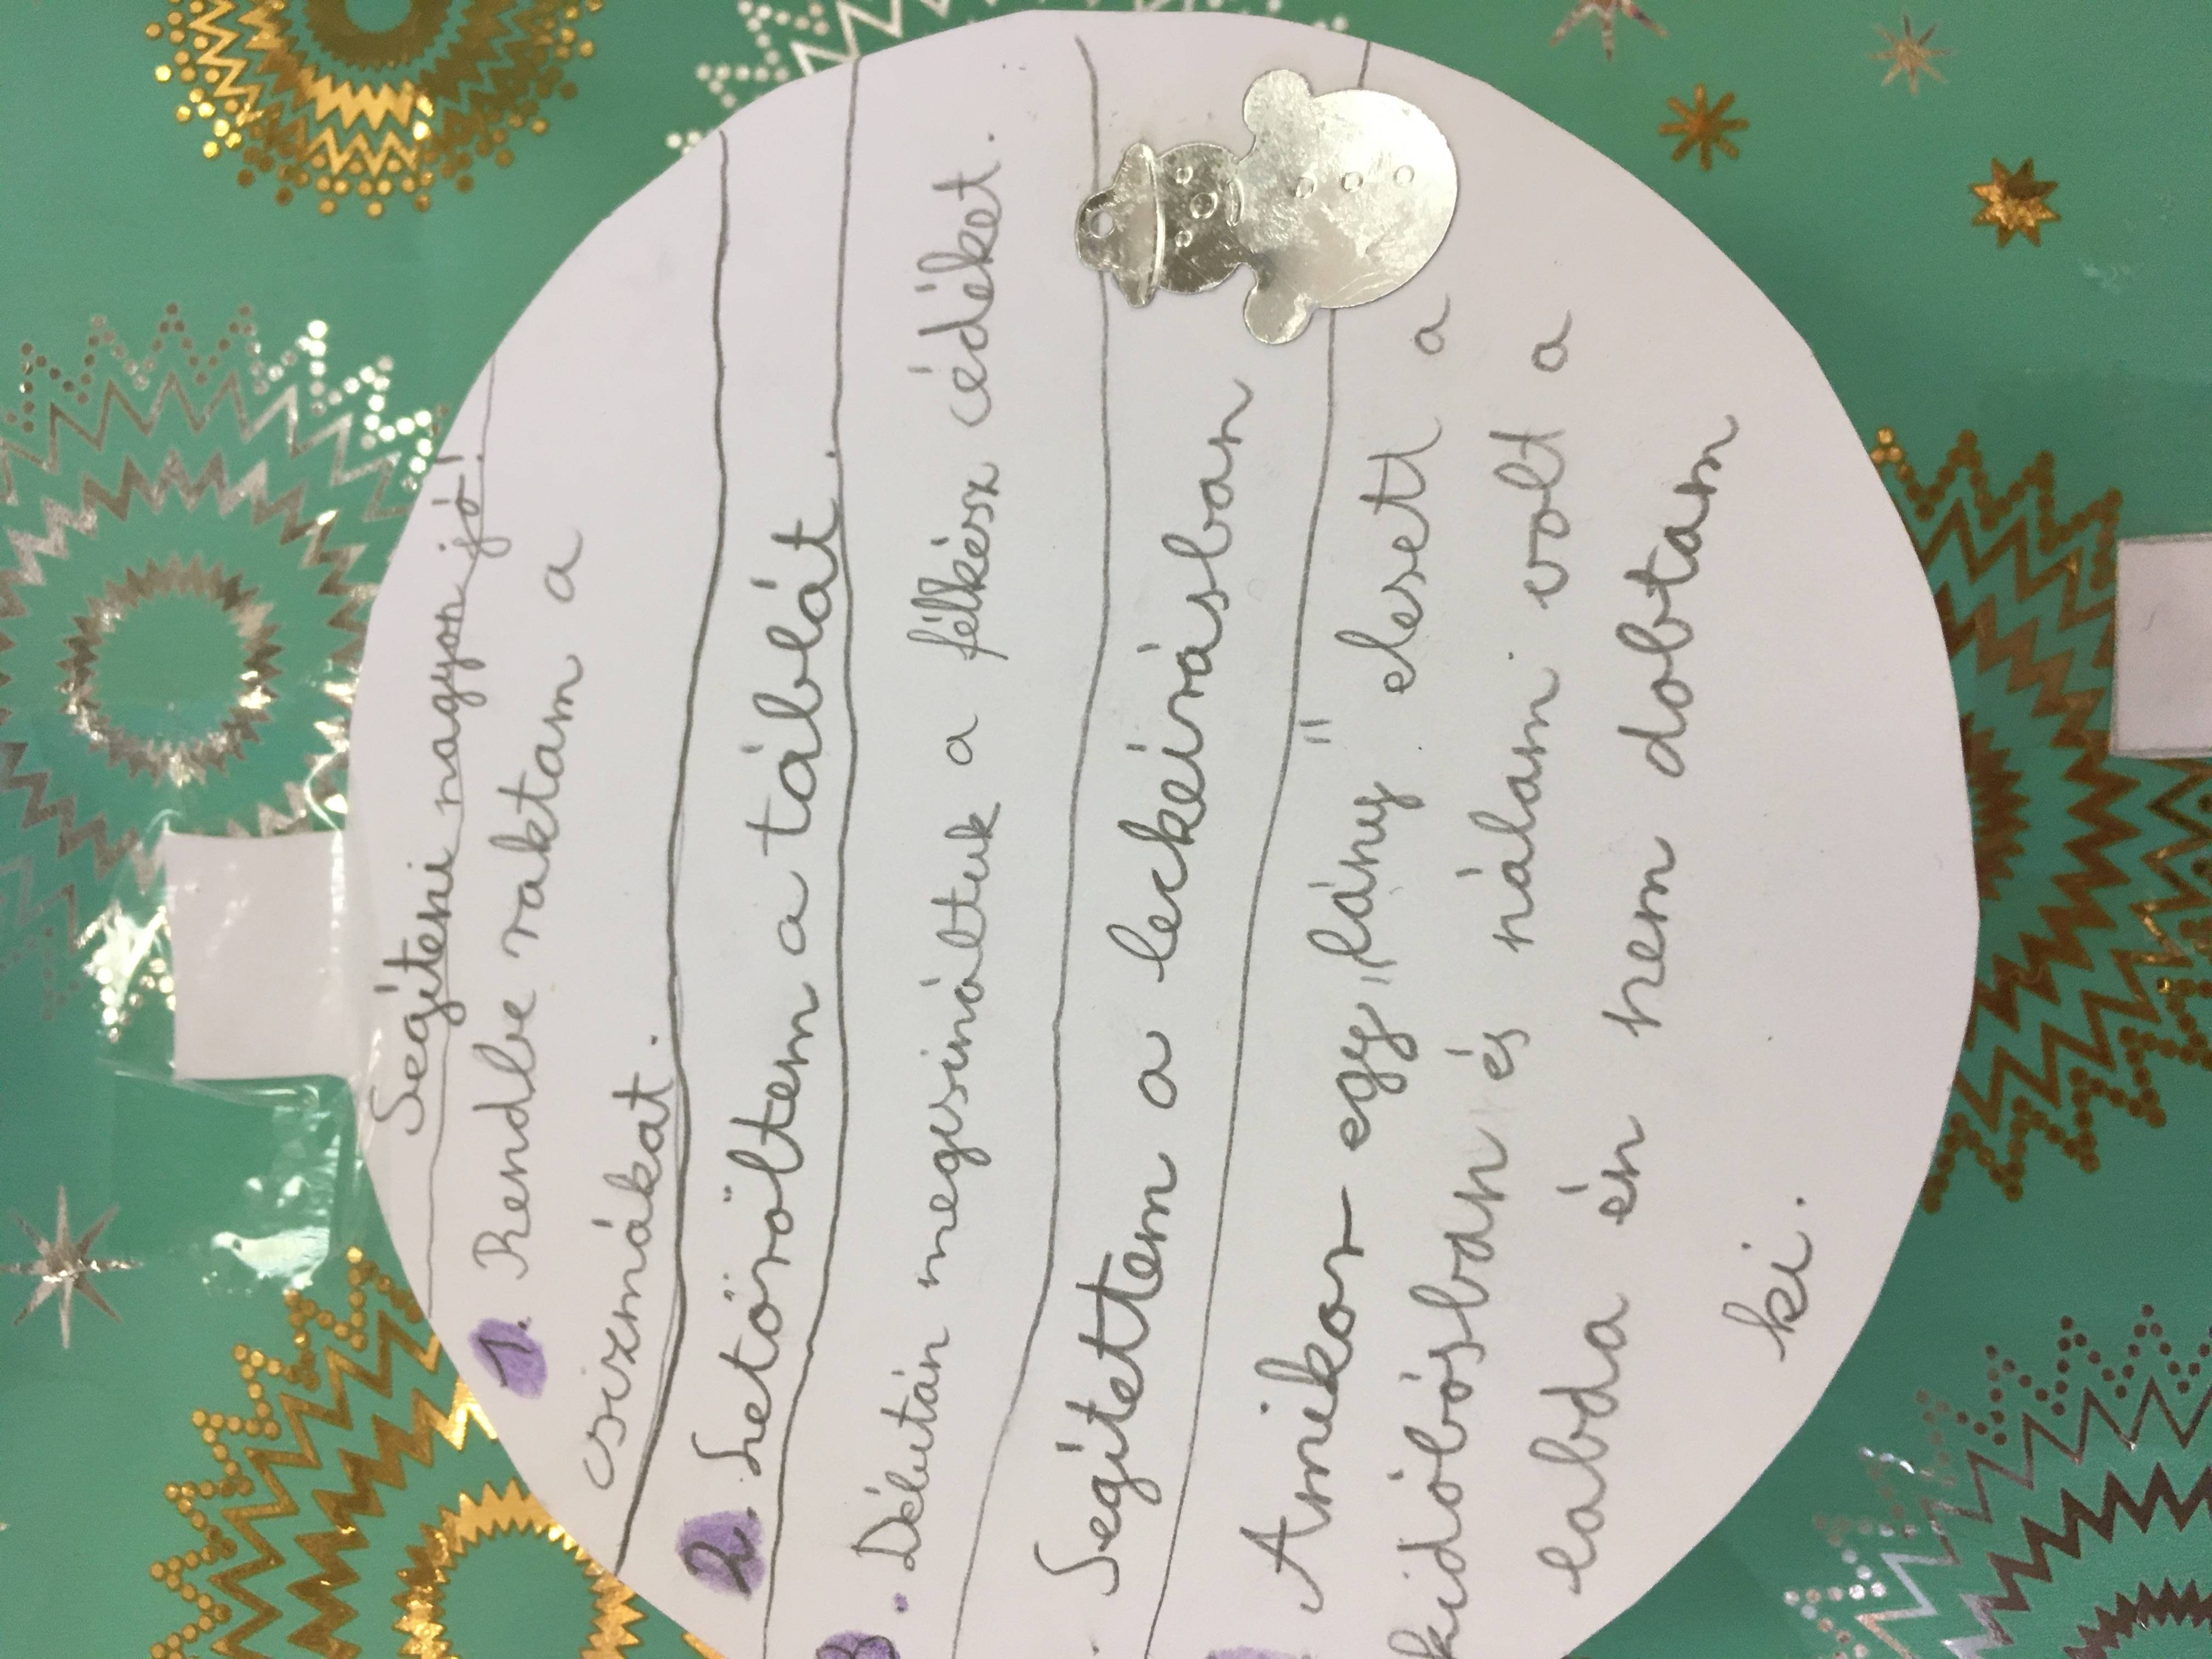 Segíteni nagyon jó!
1. Rendbe raktam a
csizmákat.
2. Letöröltem a táblát.
3. Délután megcsináltuk a félkész cédéket.
. Segítettem a leckeírásban
Amikor egy "lány" elesett a
kidobósban és nálam volt a
labda én nem dobtam
ki.